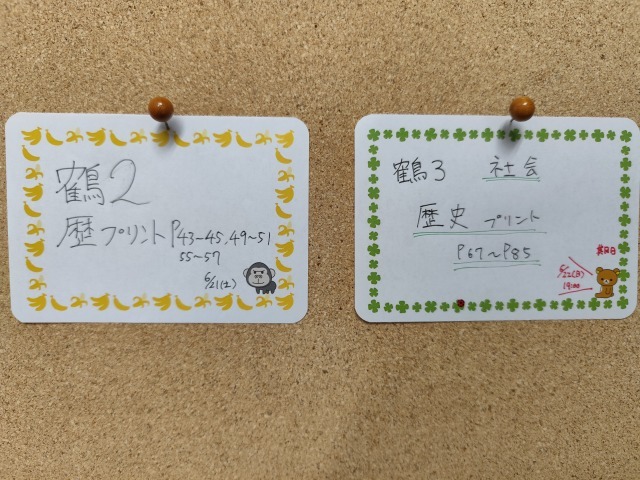 鶴2
歴プリントP43-45,49~51
55~57
6/21(土)
鶴3 社会
歴史 プリント
P67~P85
期日
6/22(日)
19:00